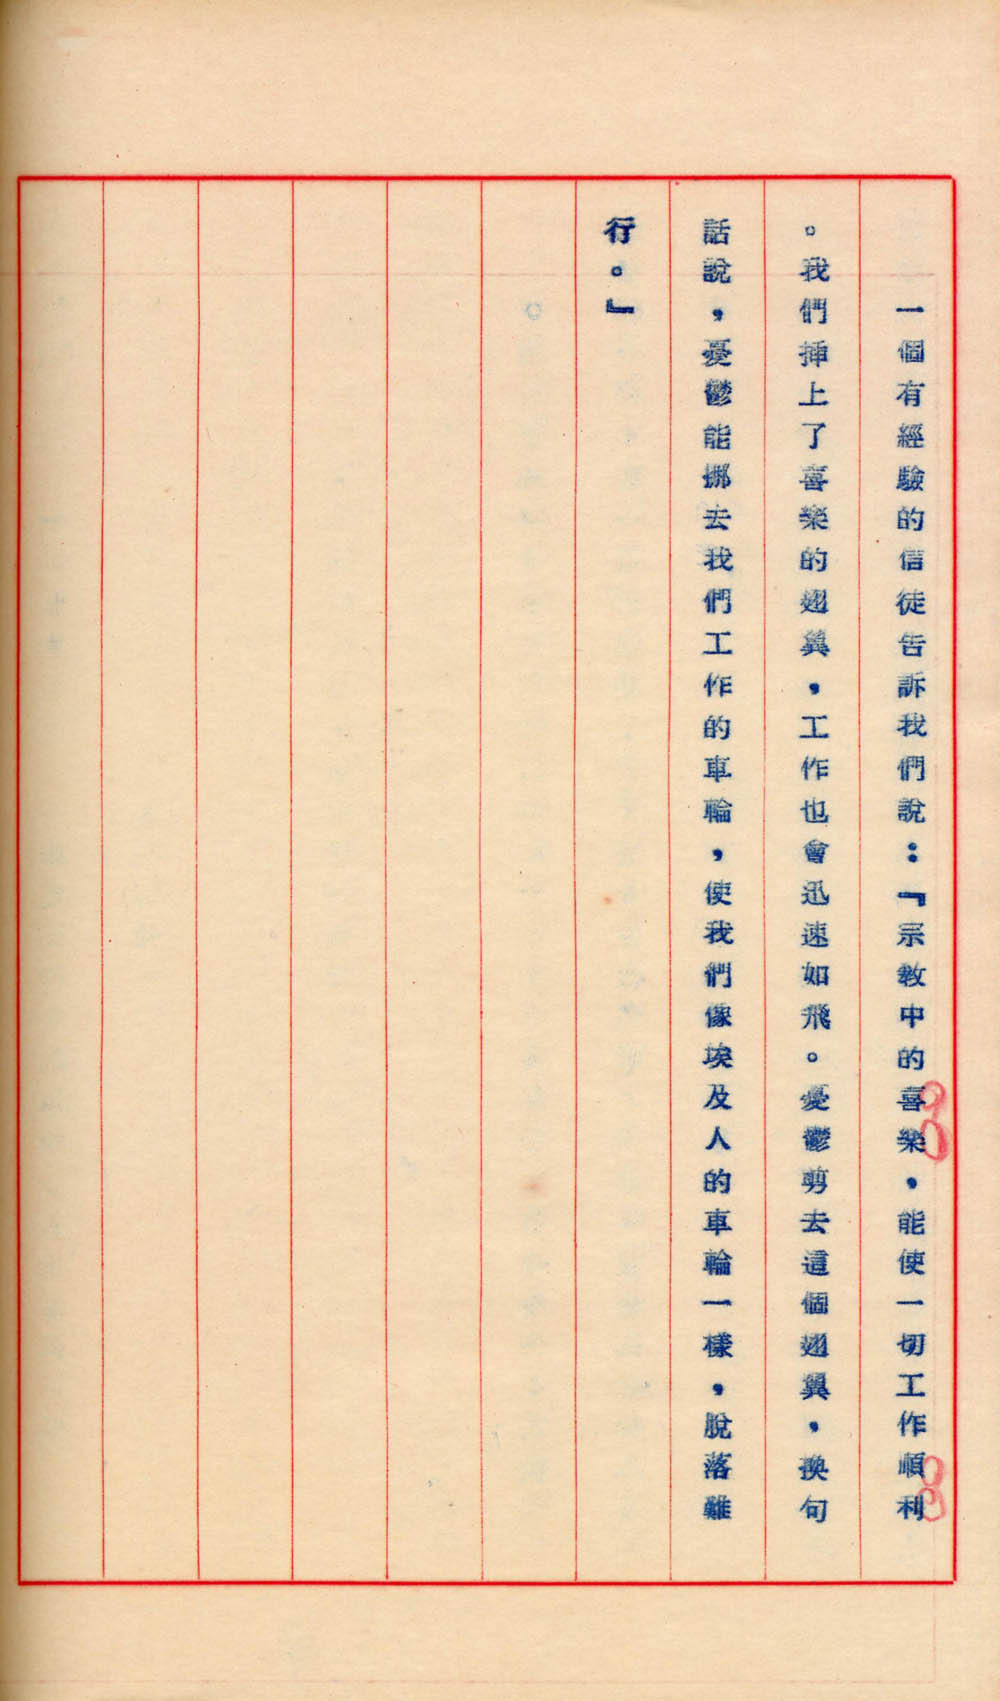 一個有經驗的信徒告訴我們說：『宗教中的喜樂，能使一切工作順利
。我們揷上了喜樂的翅翼，工作也會迅速如飛。憂鬱剪去這個翅翼，換句
話說，憂鬱能挪去我們工作的車輪，使我們像埃及人的車輪一樣，脫落難
行。』